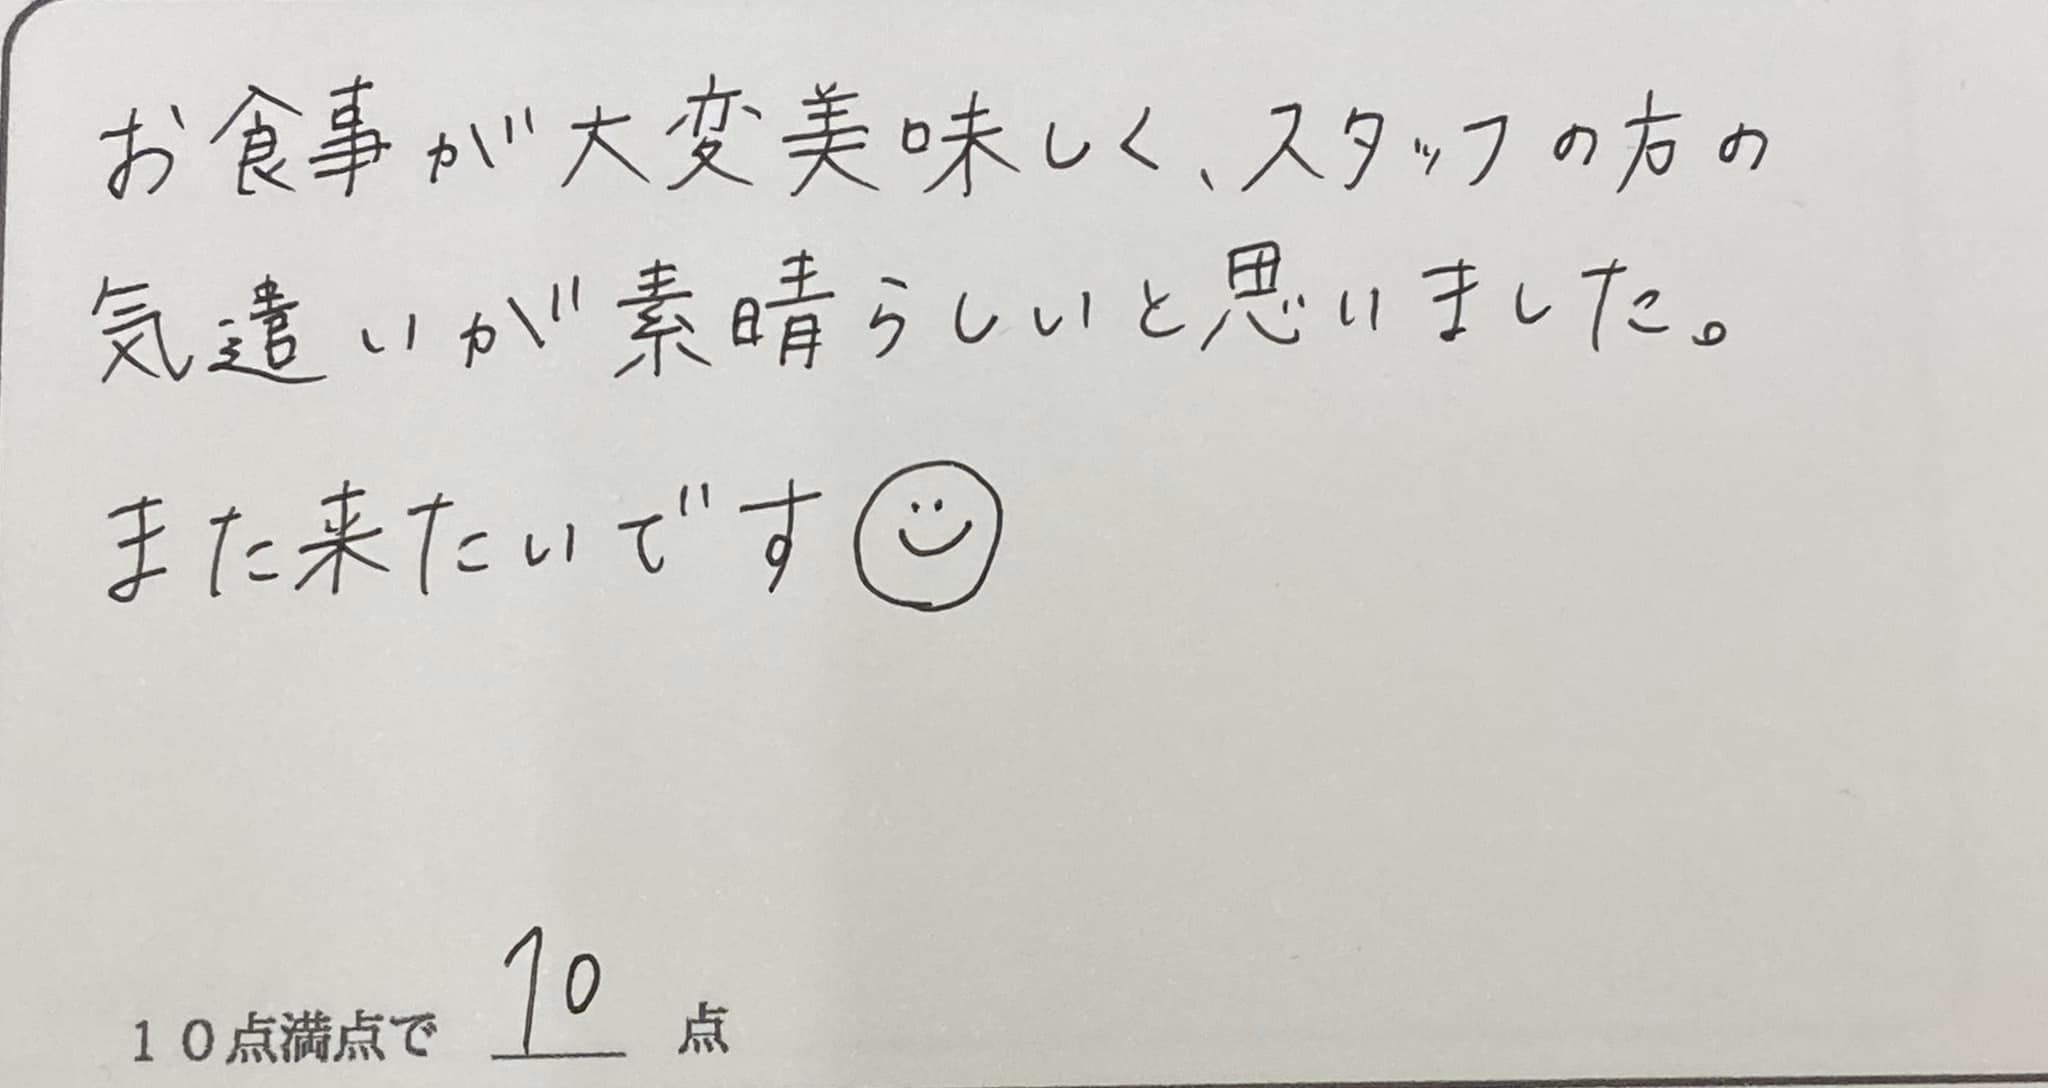 お食事が大変美味しく、スタッフの方の
気遣いが素晴らしいと思いました。
また来たいです
１０点満点で 10 点